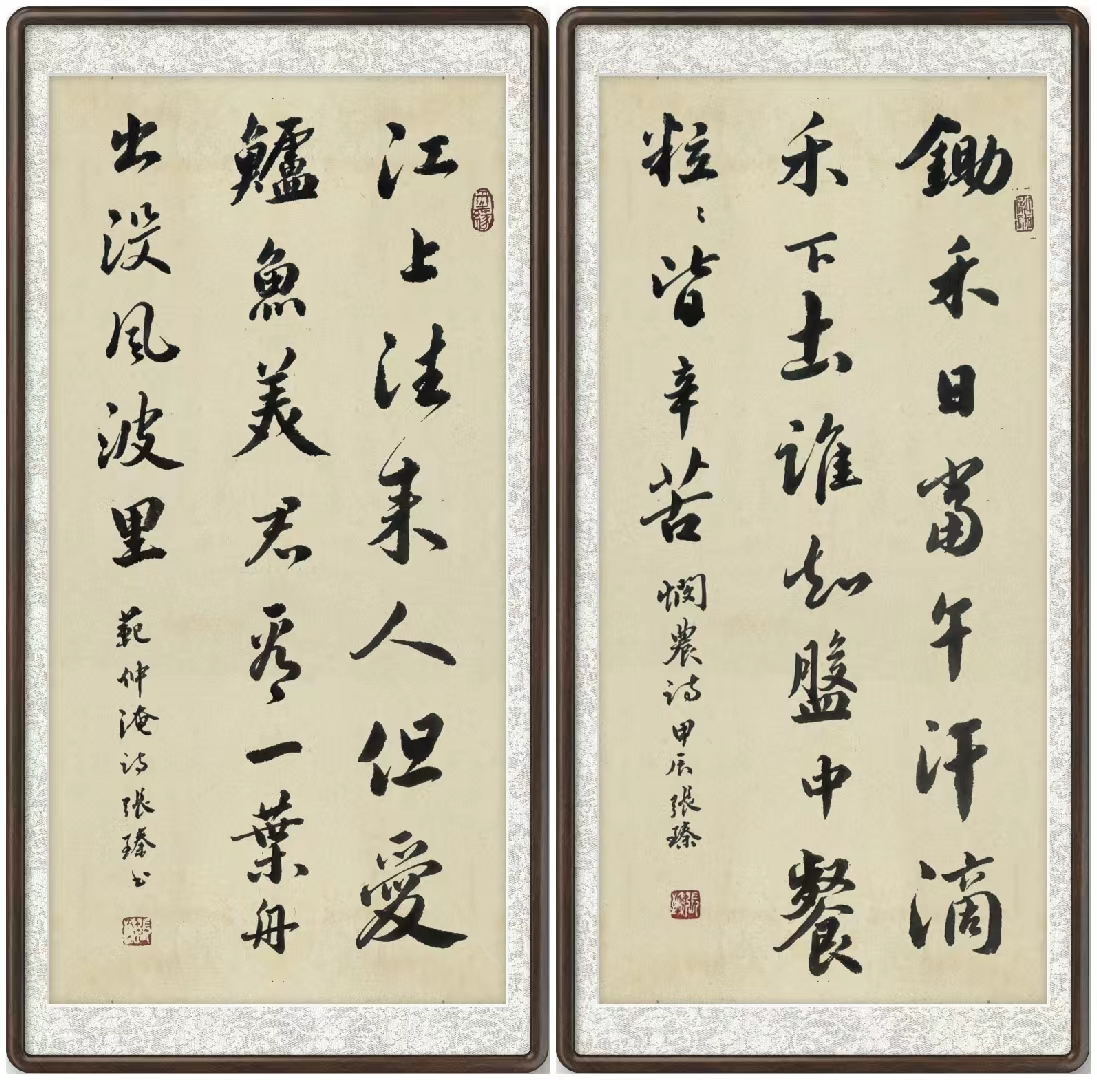 鋤禾日當午汗滴
禾下土誰知盤中餐
粒〻皆辛苦 憫農詩甲辰張瑧
江上往来人但愛
鱸魚美君看一葉舟
出没風波里 範仲淹詩張瑧书